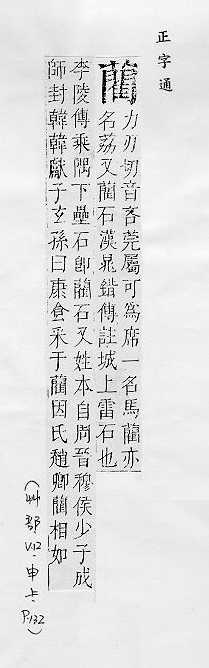 正字通
藺
力刃切音吝莞屬可為席一名馬藺亦
名荔又藺石漢鼂錯傳註城上雷石也
李陵傳乘隅下壘石卽藺石又姓本自周晉穆侯少子成
師封韓韓厥子玄孫曰康食采于藺因氏趙卿藺相如
(艸部 V.12.申上 P.132)